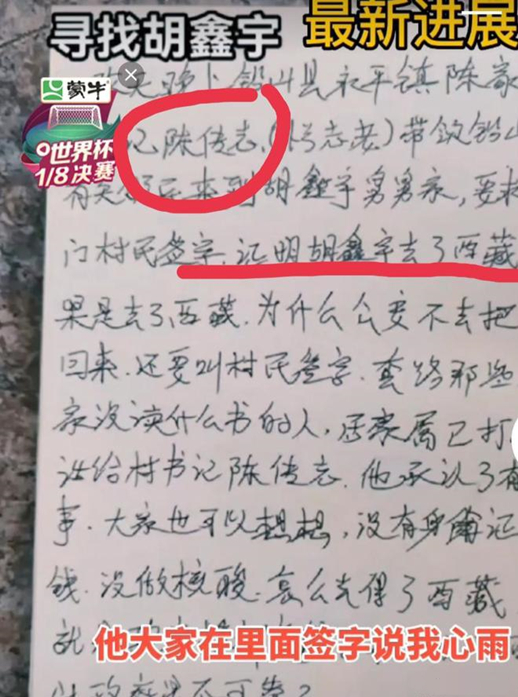 寻找胡鑫宇 最新进展
蒙牛
世界杯
1/8决赛
天晚上铅山县永平镇陈家
记陈传志,(以志老)带领铅山
有关 来到胡鑫宇舅舅家,要求
门村民签字,证明胡鑫宇去了西藏
果是去了西藏.为什么公安不去把
回来.还要叫村民签字.套路那些
家没读什么书的人,后家属已打
话给村书记陈传志.他承认了有
事.大家也可以想想,没有身份证
钱.没做核酸.怎么去得了西藏
他大家在里面签字说我心雨